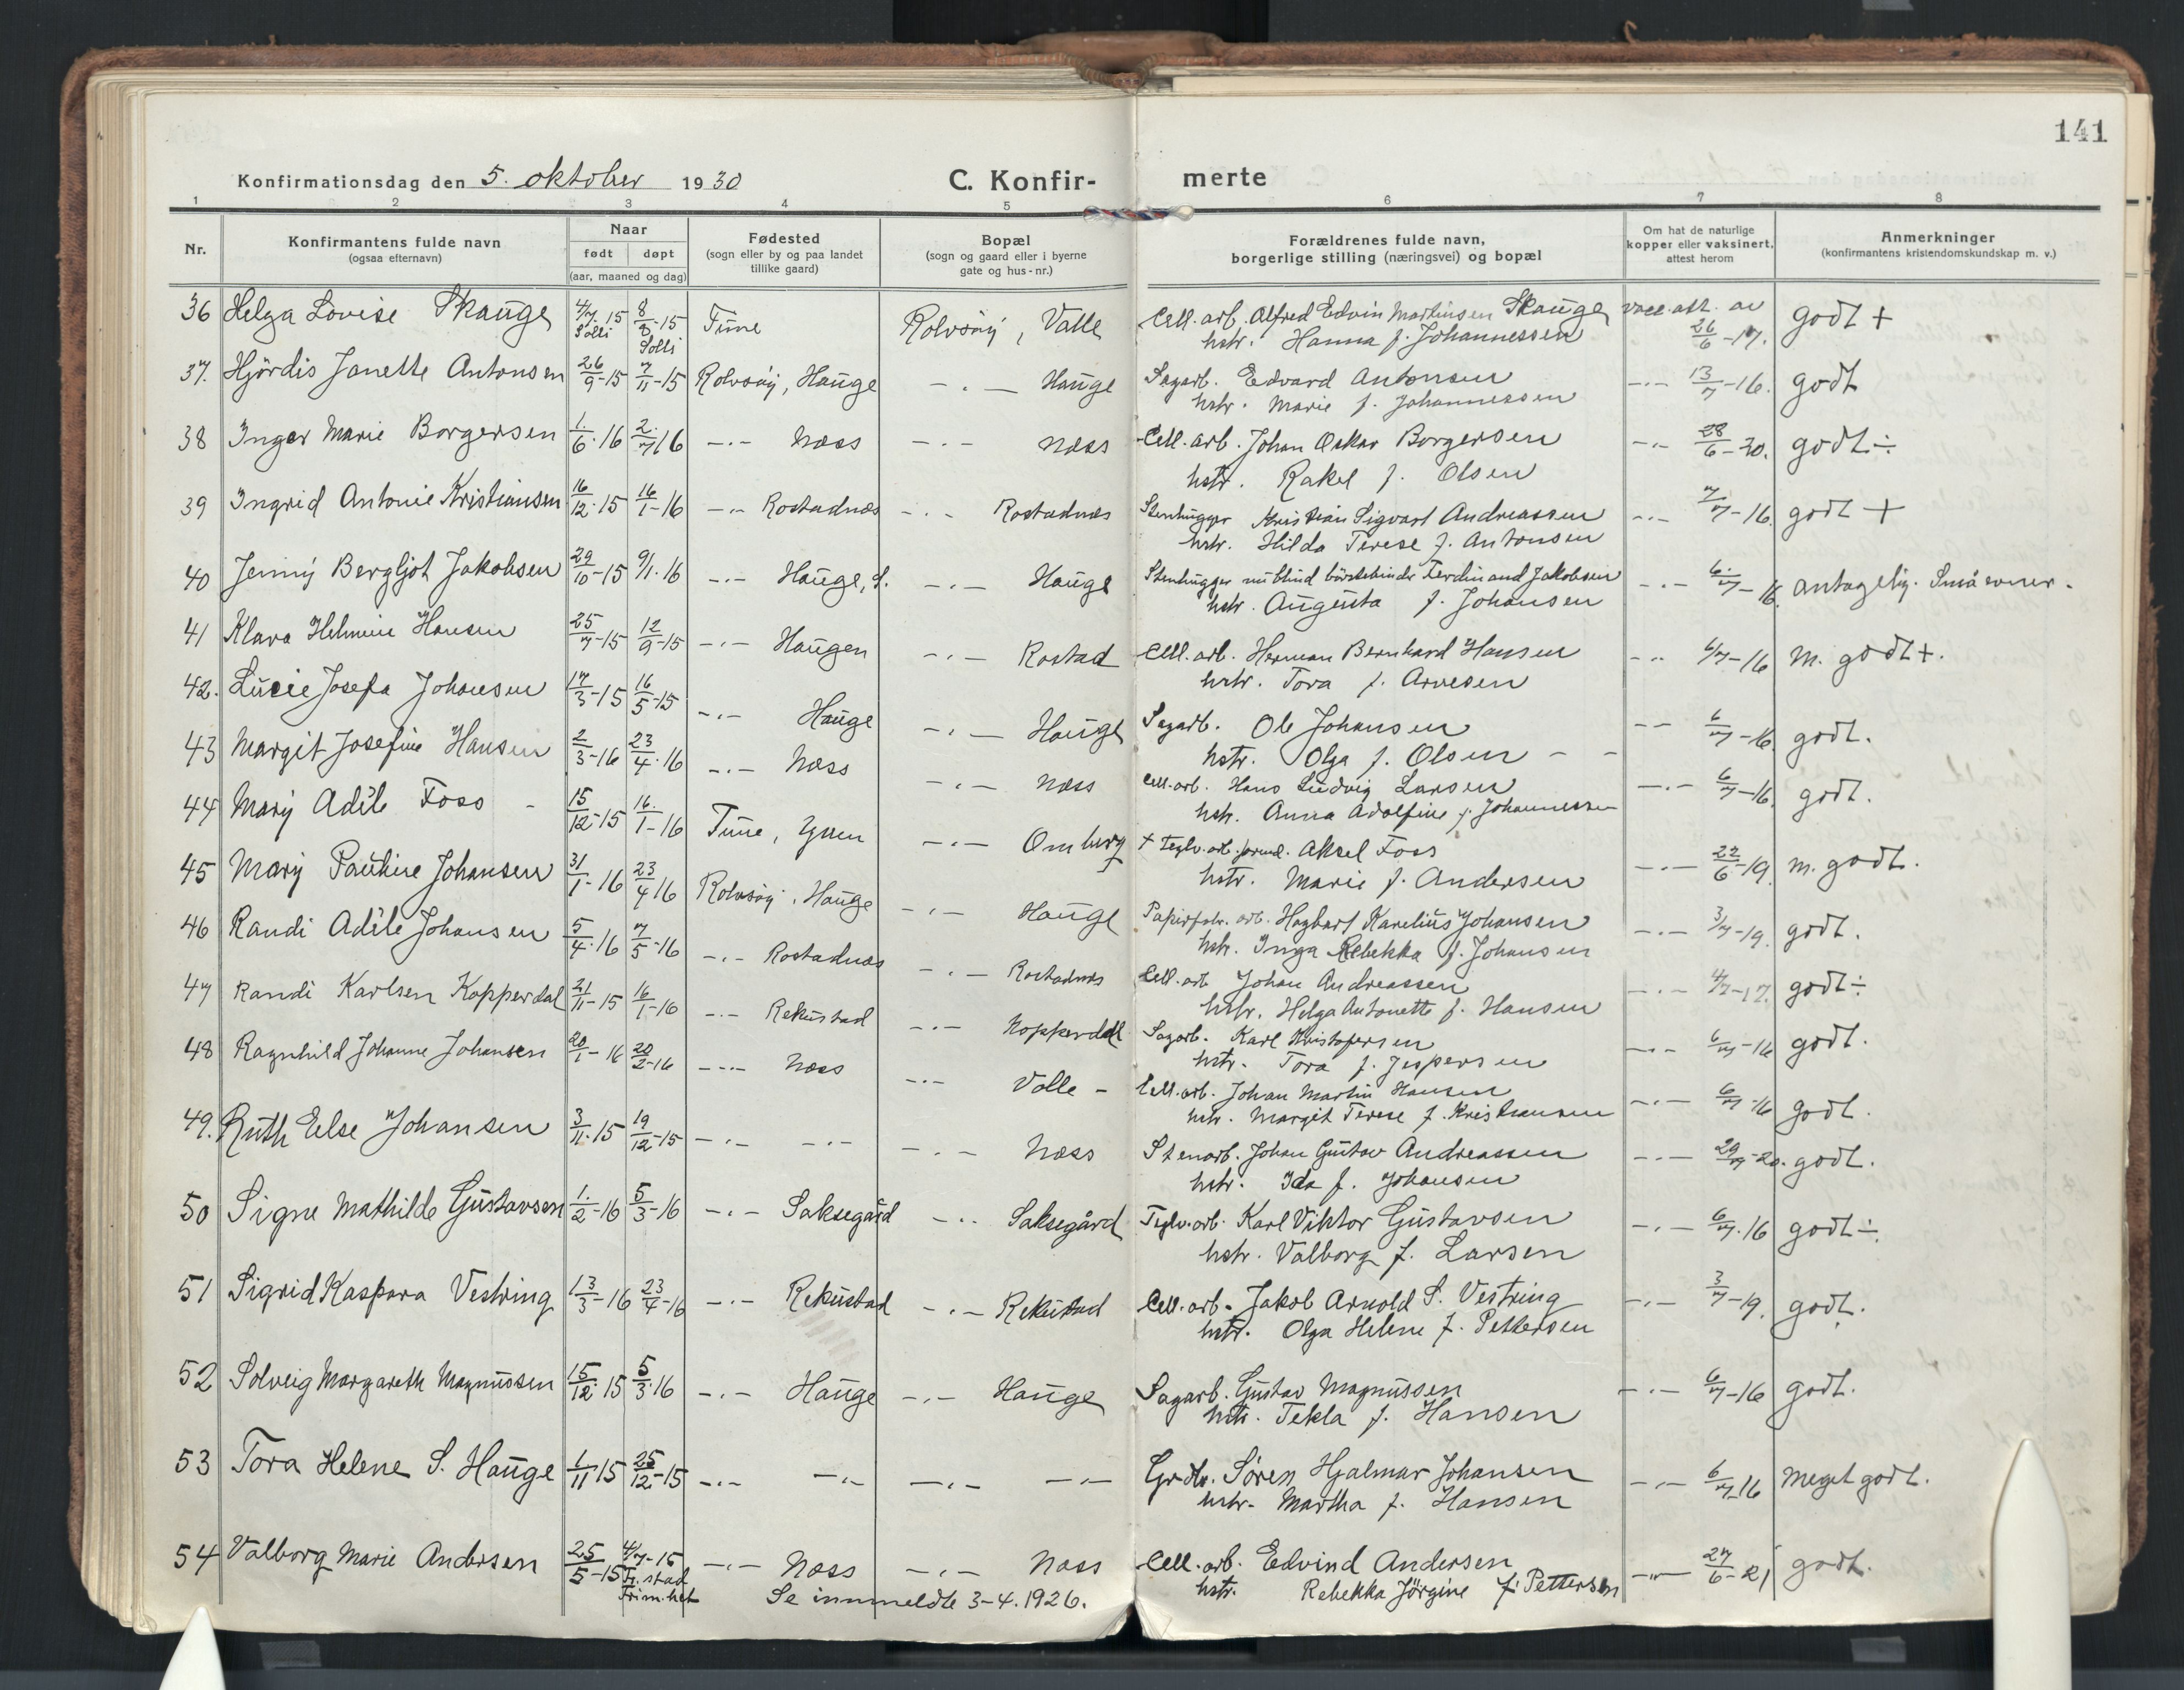 141
Konfirmationsdag den 5. oktober 1930
C. Konfir- merte
1 2 3 4 5 6 7 8
Nr.
Konfirmantens fulde navn
(ogsaa efternavn)
Naar
født døpt
(aar, maaned og dag)
Fødested
(sogn eller by og paa landet
tillike gaard)
Bopæl
(sogn og gaard eller i byerne
gate og hus-nr.)
Forældrenes fulde navn,
borgerlige stilling (næringsvei) og bopæl
Om hat de naturlige
kopper eller vaksinert,
attest herom
Anmerkninger
(konfirmantens kristendomskundskap m. v.)
36 Helga Lovise Skauge 4/7.15 Solli 8/8-15 Solli Tune Rolvsøy, Valle Cell. arb. Alfred Edvin Martinsen Skauge vacc. att. av 26/6-17. godt +
hstr. Hanna f. Johannessen
37. Hjördis Janette Antonsen 26/9-15 7/11-15 Rolvsøy, Hauge -.- Hauge Sagarb. Edvard Antonsen -.- 13/7-16. godt
hstr. Marie f. Johannessen
38 Inger Marie Borgersen 1./6.16 2./7 16 -.- Næss -.- Næss Cell. arb. Johan Oskar Borgersen -.- 28/6-20. godt ÷
hstr. Rakel f. Olsen
39 Ingrid Antonie Kristiansen 16/12.15 16/1-16 -.- Rostadnæs -.- Rostadnæs Stenhugger Kristian Sigvart Andreassen -.- 7/7-16. godt +
hstr. Hilda Terese f. Antonsen
40 Jenny Bergljot Jakobsen 29/10-15 9/1.16 -.- Hauge, S. -.- Hauge Stenhugger nu blind börstebinder Ferdinand Jakobsen -.- 6./7-16. antagelig. Små evner.
hstr. Augusta f. Johansen
41 Klara Helmine Hansen 25/7-15 12/9-15 -.- Haugen -.- Rostad Cell. arb. Herman Bernhard Hansen -.- 6/7-16 M. godt +.
hstr. Tora f. Arvesen
42. Lucie Josefa Johansen 17/3-15 16/5-15 -.- Hauge -.- Hauge Sagarb. Ole Johansen -- 6/7-16 godt.
hstr. Olga f. Olsen - -
43 Margit Josefine Hansen 2/3-16 23/4.16 -.- Næss -.- Næss Cell. arb. Hans Ludvig Larsen -.- 6/7-16. godt.
hstr. Anna Adolfine f. Johannessen
44 Mary Adele Foss - 15/12-15 16./1-16 Tune, Yven -.- Omberg + Teglv. arb. formd. Aksel Foss -.- 22/6-19. m. godt.
hstr. Marie f. Andersen
45 Mary Pauline Johansen 31/1-16 23/4 16 Rolvsøy, Hauge -.- Hauge Papirfabr. arb. Hagbart Karelius Johansen -.- 3/7-19. godt.
hstr. Inga Rebekka f. Johansen
46 Randi Adele Johansen 5/4.16 7/5-16 -.- Rostadnæs -.- Rostadnæs Cell. arb Johan Andreassen -.- 4/7-17. godt ÷
hstr. Helga Antonette f. Hansen
47 Randi Karlsen Kopperdal 21/11-15 16/1-16 -.- Rekustad -.- Kopperdal Sagarb. Karl Kristofersen -.- 6/7-16 godt.
hstr. Tora f. Jespersen
48 Ragnhild Johanne Johansen 20/1-16 20/2-16 -.- Næss -.- Valle - Cell. arb. Johan Martin Hansen -.- 6/7-16 godt.
hstr. Margit Terese f. Kristiansen
49. Ruth Else Johansen 3/11.15 19/12-15 -.- -.- -.- Næss Stenarb. Johan Gustav Andreassen -.- 29/7-20. godt.
hstr. Ida f. Johansen
50 Signe Mathilde Gustavsen 1./2-16 5/3-16 -.- Saksegård -.. Saksegård Teglv. arb. Karl Viktor Gustavsen -.- 6/7.16 godt ÷.
hstr. Valborg f. Larsen
51 Sigrid Kaspara Vestring 13/3-16 23/4-16 -.- Rekustad -.- Rekustad Cell. arb. Jakob Arnold S. Vestring -.- 3/7-19. godt.
hstr. Olga Helene f. Pettersen
52 Solveig Margareth Magnussen 15/12.15 5/3.16 -.- Hauge -.- Hauge Sagarb. Gustav Magnussen -.- 6/7-16 godt.
hstr. Tekla f. Hansen
53 Tora Helene S. Hauge 1/11 15 25/12-15 -.- -.- -.- -.- Grdbr. Søren Hjalmar Johansen -.- 6/7-16 Meget godt.
hstr. Martha f. Hansen
54 Valborg Marie Andersen 25/5-15 4/7-15 -.- Næss -.- Næss Cell. arb. Edvind Andersen -.- 27/6-21 godt.
Fr.stad
Frim.het Se innmeldte 3-4.1926. hstr. Rebekka Jörgine f. Pettersen